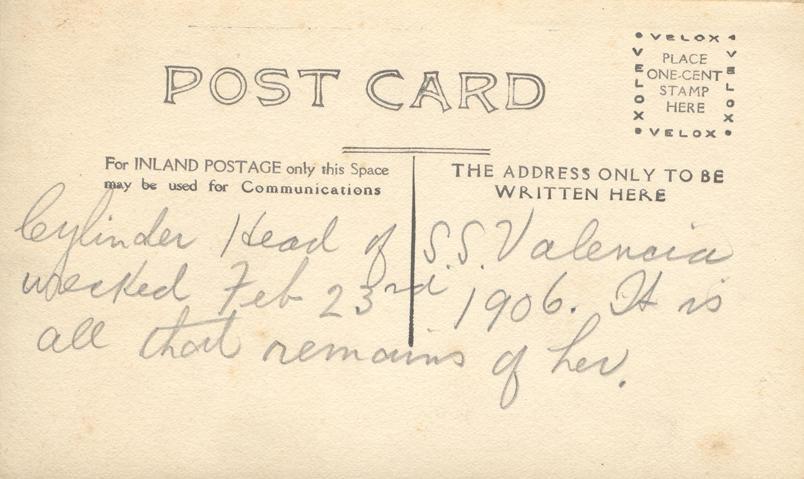 POST CARD
VELOX
VELOX
VELOX
VELOX
PLACE
ONE-CENT
STAMP
HERE
For INLAND POSTAGE only this Space
may be used for Communications
THE ADDRESS ONLY TO BE
WRITTEN HERE
Cylinder Head of S.S. Valencia
wrecked Feb 23rd. 1906. It is
all that remains of her.